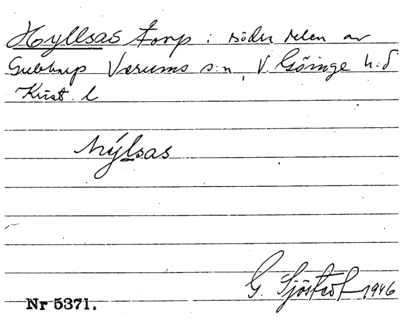 Hyllsas torp: södra delen av
Gubbarp Verums s:n, V. Göinge h:d
Krist. l
hýlsas
G. Sjöstedt 1946
Nr 5371.